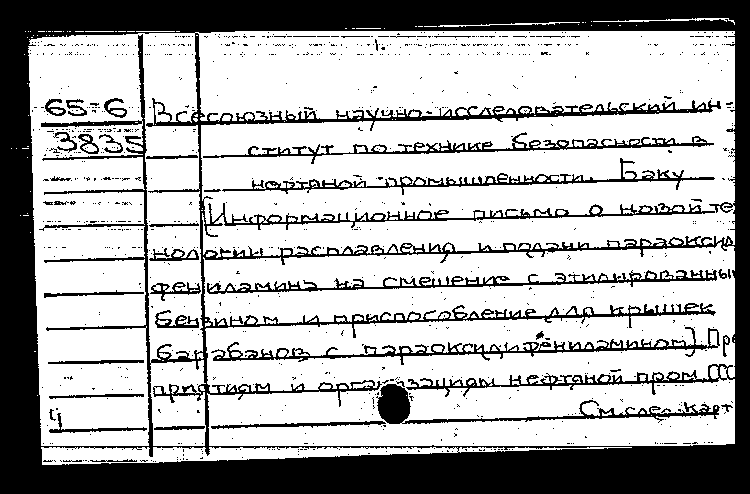 65-6 Всесоюзный научно-исследовательский ин-
3835 ститут по технике безопасности в
нефтяной промышленности. Баку
[Информационное письмо о новой те
нологии расплавления и подачи параоксид
фениламина на смешение с этилированны
бензином и приспособление для крышек
барабанов с параоксидифениламином]. Пре
приятиям и организациям нефтяной пром. ССС
Ч См. след. карт